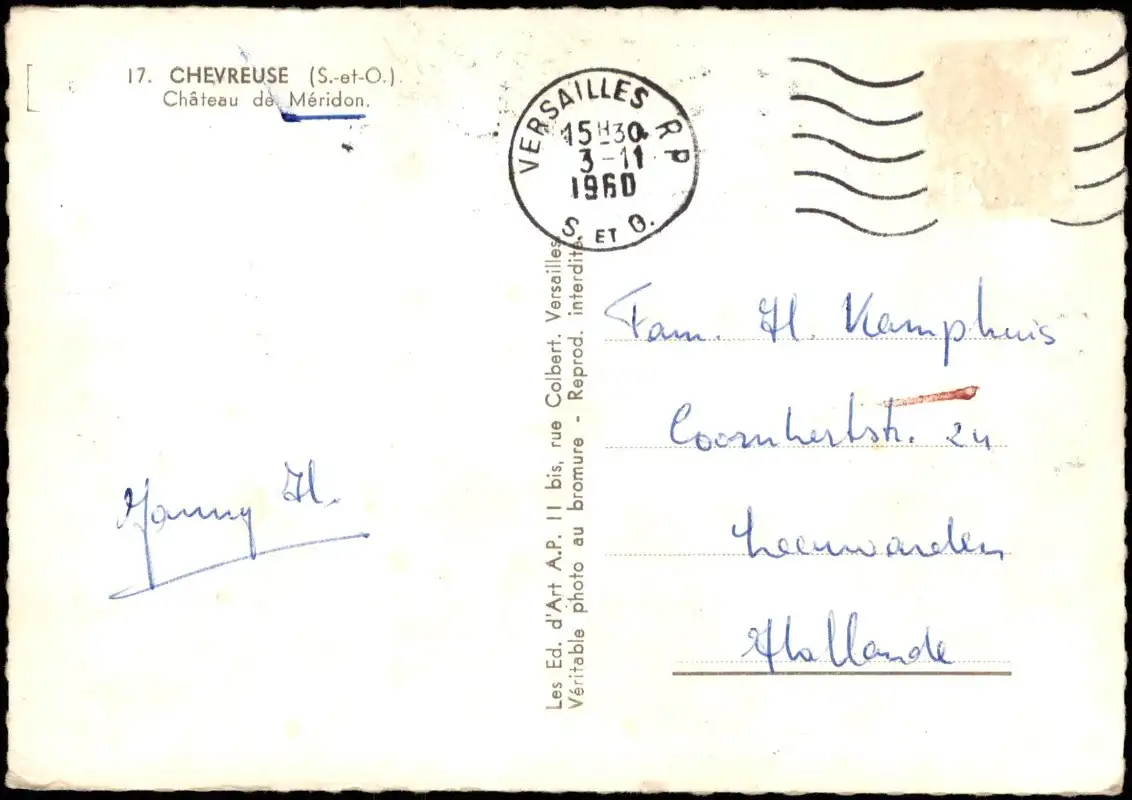 17. CHEVREUSE (S.-et-O.).
Château de Méridon.
VERSAILLES R P
15H30
3-11
1960
S. ET O.
Les Ed. d'Art A.P. 11 bis, rue Colbert, Versailles.
Véritable photo au bromure - Reprod. interdite.
Fam. H. Kamphuis
Coornhertstr. 24
Leeuwarden
Hollande
H.